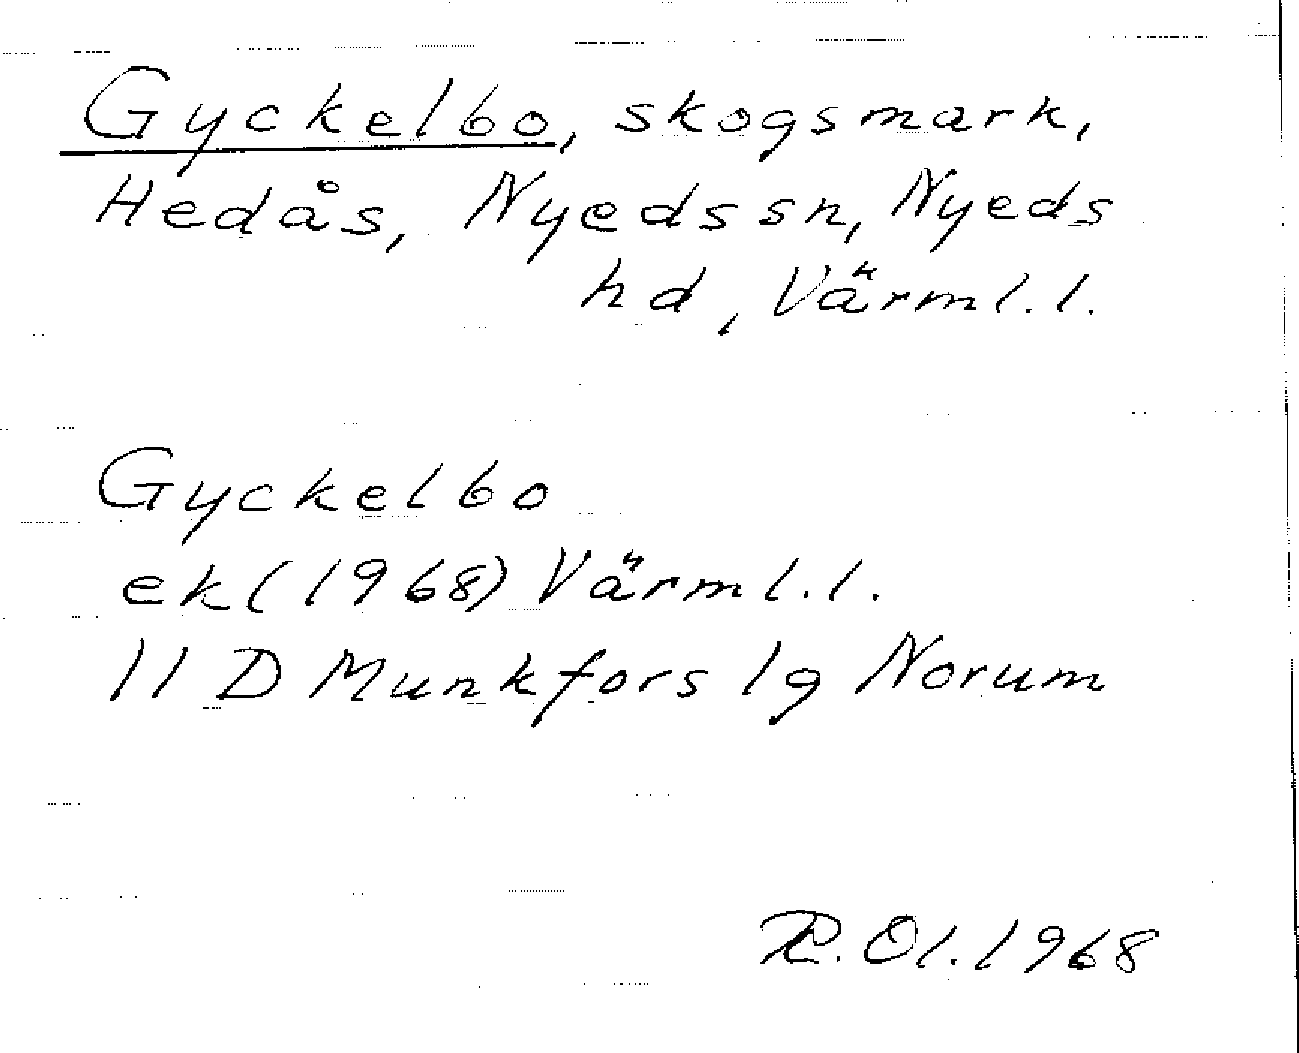 Gyckelbo, skogsmark,
Hedås, Nyeds sn, Nyeds
hd, Värml.l.
Gyckelbo
ek (1968) Värml.l.
11 D Munkfors lg Norum
R. Ol. 1968